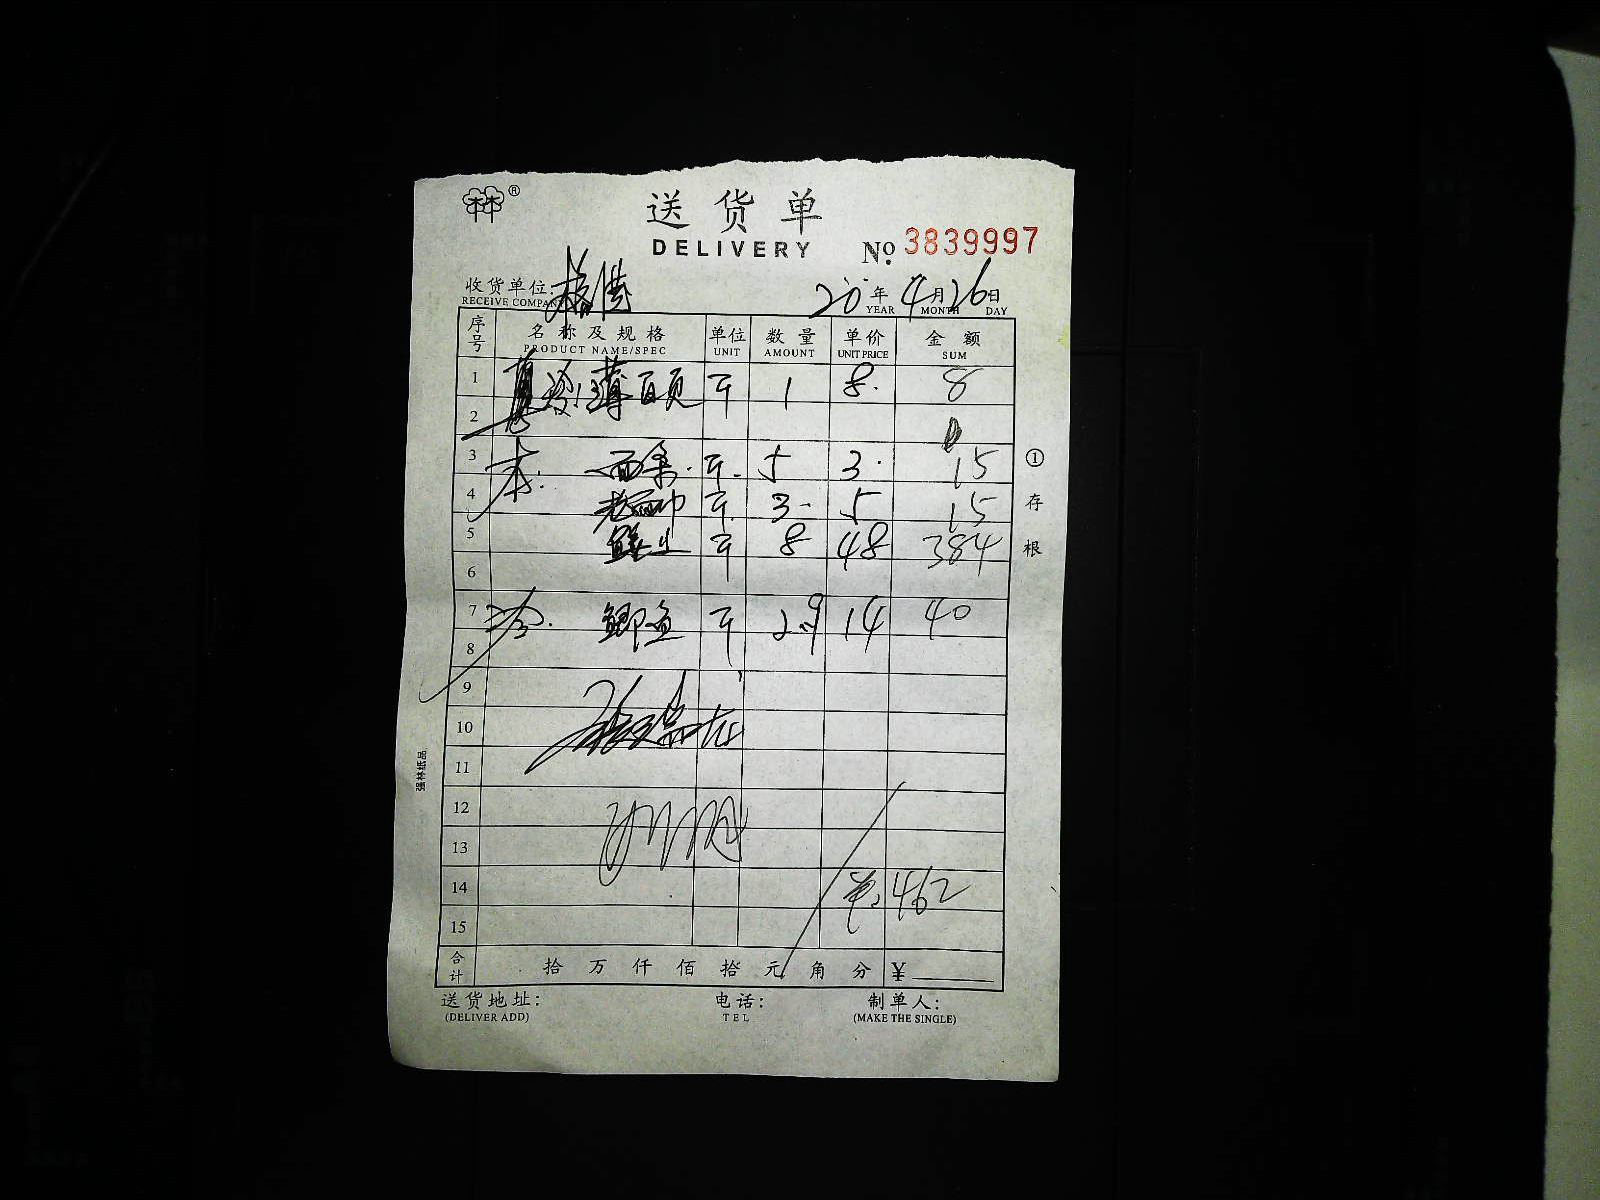 林林®
送货单
DELIVERY
№ 3839997
收货单位:
RECEIVE COMPANY
20 年 4 月 26 日
YEAR MONTH DAY
序号 名称及规格 单位 数量 单价 金额
PRODUCT NAME/SPEC UNIT AMOUNT UNIT PRICE SUM
1 薄百页 斤 1 8. 8
2
3 本: 面条. 斤. 5 3. 15
4 老面巾 斤. 3. 5 15
5 斤 8 48 384
6
7 冷. 鲫鱼 斤 2.9 14 40
8
9
10
11
12
13
14 462
15
合计 拾 万 仟 佰 拾 元 角 分 ¥
送货地址: 电话: 制单人:
(DELIVER ADD) TEL (MAKE THE SINGLE)
①存根
强林纸品